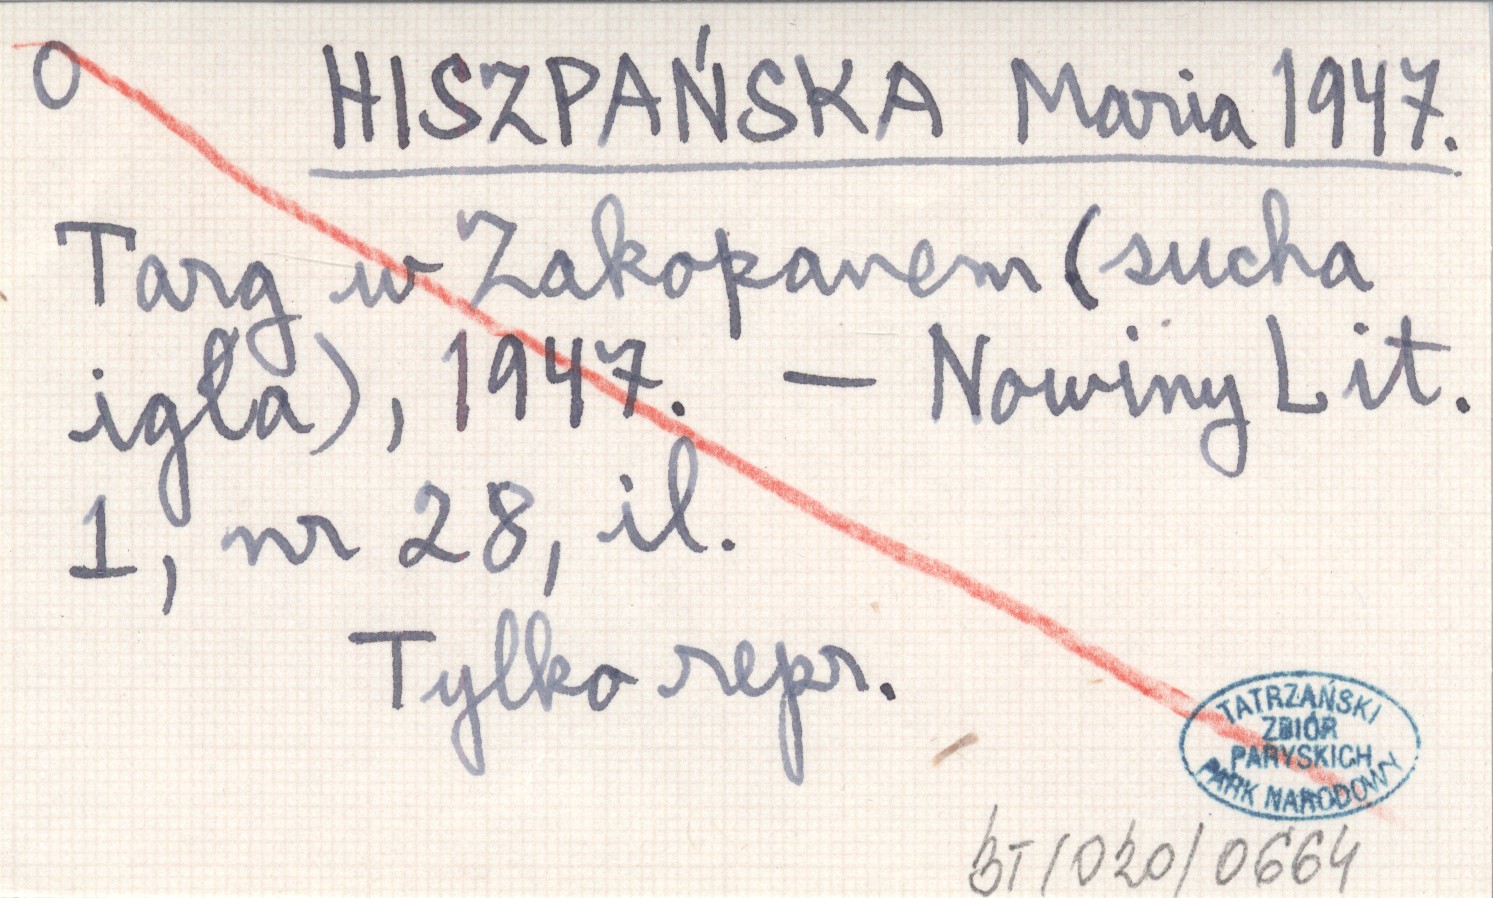 O HISZPAŃSKA Maria 1947.
Targ w Zakopanem (sucha
igła), 1947. — Nowiny Lit.
1, nr 28, il.
Tylko repr.
TATRZAŃSKI
ZBIÓR
PARYSKICH
PARK NARODOWY
BT/020/0664